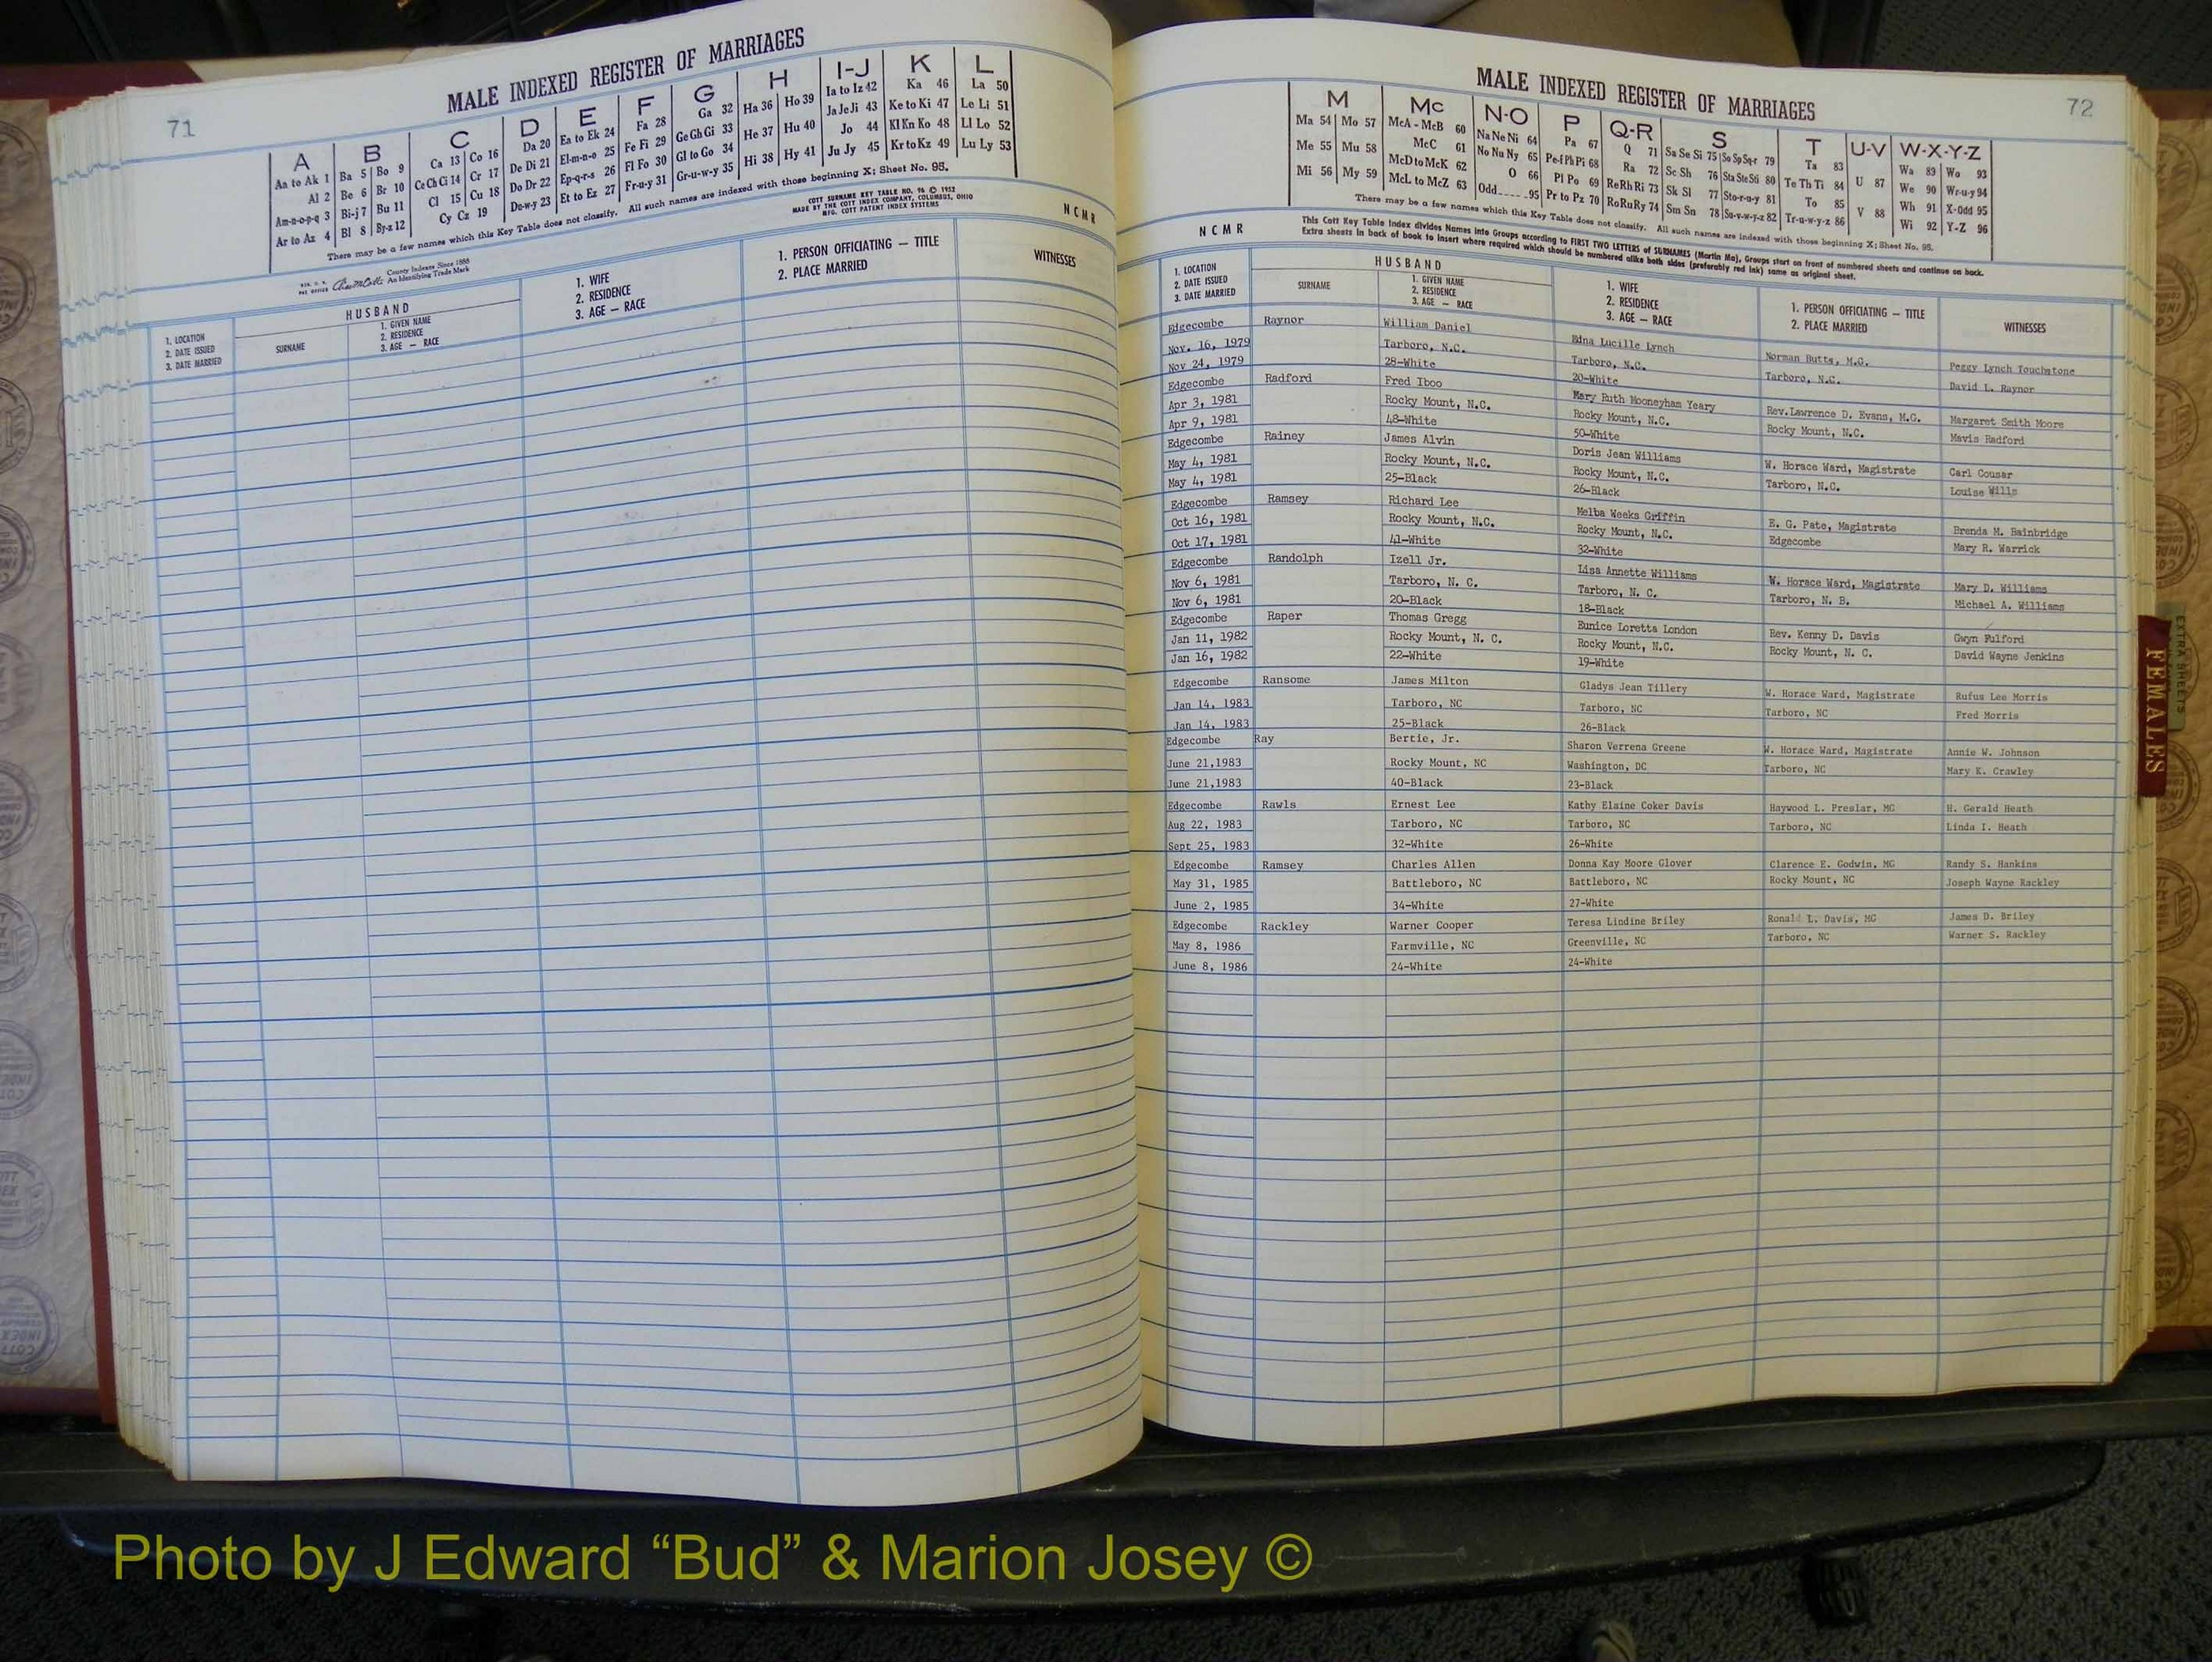 71
MALE INDEXED REGISTER OF MARRIAGES
A B C D E F G H I-J K L
Aa to Ak 1 Ba 5 Bo 9 Ca 13 Co 16 Da 20 Ea to Ek 24 Fa 28 Ga 32 Ha 36 Ho 39 Ia to Iz 42 Ka 46 La 50
Al 2 Be 6 Br 10 Ce Ch Ci 14 Cr 17 De Di 21 El-m-n-o 25 Fe Fi 29 Ge Gh Gi 33 He 37 Hu 40 Ja Je Ji 43 Ke to Ki 47 Le Li 51
Am-n-o-p-q 3 Bi-j 7 Bu 11 Cl 15 Cu 18 Do Dr 22 Ep-q-r-s 26 Fl Fo 30 Gl to Go 34 Hi 38 Hy 41 Jo 44 Kl Kn Ko 48 Ll Lo 52
Ar to Az 4 Bl 8 By-z 12 Cy Cz 19 Du-w-y 23 Et to Ez 27 Fr-u-y 31 Gr-u-w-y 35 Ju Jy 45 Kr to Kz 49 Lu Ly 53
There may be a few names which this Key Table does not classify. All such names are indexed with those beginning X; Sheet No. 95.
COTT SURNAME KEY TABLE NO. 96 © 1952
MADE BY THE COTT INDEX COMPANY, COLUMBUS, OHIO
MFG. COTT PATENT INDEX SYSTEMS
N C M R
County Indexes Since 1888
An Identifying Trade Mark
1. LOCATION
2. DATE ISSUED
3. DATE MARRIED
HUSBAND
SURNAME
1. GIVEN NAME
2. RESIDENCE
3. AGE — RACE
1. WIFE
2. RESIDENCE
3. AGE — RACE
1. PERSON OFFICIATING — TITLE
2. PLACE MARRIED
WITNESSES
72
MALE INDEXED REGISTER OF MARRIAGES
M Mc N-O P Q-R S T U-V W-X-Y-Z
Ma 54 Mo 57 McA - McB 60 Na Ne Ni 64 Pa 67 Q 71 Sa Se Si 75 So Sp Sq-r 79 Ta 83 Wa 89 Wo 93
Me 55 Mu 58 McC 61 No Nu Ny 65 Pe-f Ph Pi 68 Ra 72 Sc Sh 76 Sta Ste Sti 80 Te Th Ti 84 U 87 We 90 Wr-u-y 94
Mi 56 My 59 McD to McK 62 O 66 Pl Po 69 Re Rh Ri 73 Sk Sl 77 Sto-r-u-y 81 To 85 V 88 Wh 91 X-Odd 95
McL to McZ 63 Odd 95 Pr to Pz 70 Ro Ru Ry 74 Sm Sn 78 Su-v-w-y-z 82 Tr-u-w-y-z 86 Wi 92 Y-Z 96
There may be a few names which this Key Table does not classify. All such names are indexed with those beginning X; Sheet No. 95.
N C M R
This Cott Key Table Index divides Names into Groups according to FIRST TWO LETTERS of SURNAMES (Martin Ma), Groups start on front of numbered sheets and continue on back.
Extra sheets in back of book to insert where required which should be numbered alike both sides (preferably red ink) same as original sheet.
1. LOCATION
2. DATE ISSUED
3. DATE MARRIED
HUSBAND
SURNAME
1. GIVEN NAME
2. RESIDENCE
3. AGE — RACE
1. WIFE
2. RESIDENCE
3. AGE — RACE
1. PERSON OFFICIATING — TITLE
2. PLACE MARRIED
WITNESSES
Edgecombe Raynor William Daniel Edna Lucille Lynch Norman Butts, M.G. Peggy Lynch Touchstone
Nov. 16, 1979 Tarboro, N.C. Tarboro, N.C. Tarboro, N.C. David L. Raynor
Nov 24, 1979 28-White 20-White
Edgecombe Radford Fred Iboo Mary Ruth Mooneyham Yeary Rev.Lawrence D. Evans, M.G. Margaret Smith Moore
Apr 3, 1981 Rocky Mount, N.C. Rocky Mount, N.C. Rocky Mount, N.C. Mavis Radford
Apr 9, 1981 48-White 50-White
Edgecombe Rainey James Alvin Doris Jean Williams W. Horace Ward, Magistrate Carl Cousar
May 4, 1981 Rocky Mount, N.C. Rocky Mount, N.C. Tarboro, N.C. Louise Wills
May 4, 1981 25-Black 26-Black
Edgecombe Ramsey Richard Lee Melba Weeks Griffin E. G. Pate, Magistrate Brenda M. Bainbridge
Oct 16, 1981 Rocky Mount, N.C. Rocky Mount, N.C. Edgecombe Mary R. Warrick
Oct 17, 1981 41-White 32-White
Edgecombe Randolph Izell Jr. Lisa Annette Williams W. Horace Ward, Magistrate Mary D. Williams
Nov 6, 1981 Tarboro, N. C. Tarboro, N. C. Tarboro, N. B. Michael A. Williams
Nov 6, 1981 20-Black 18-Black
Edgecombe Raper Thomas Gregg Eunice Loretta London Rev. Kenny D. Davis Gwyn Fulford
Jan 11, 1982 Rocky Mount, N. C. Rocky Mount, N.C. Rocky Mount, N. C. David Wayne Jenkins
Jan 16, 1982 22-White 19-White
Edgecombe Ransome James Milton Gladys Jean Tillery W. Horace Ward, Magistrate Rufus Lee Morris
Jan 14, 1983 Tarboro, NC Tarboro, NC Tarboro, NC Fred Morris
Jan 14, 1983 25-Black 26-Black
Edgecombe Ray Bertie, Jr. Sharon Verrena Greene W. Horace Ward, Magistrate Annie W. Johnson
June 21,1983 Rocky Mount, NC Washington, DC Tarboro, NC Mary K. Crawley
June 21,1983 40-Black 23-Black
Edgecombe Rawls Ernest Lee Kathy Elaine Coker Davis Haywood L. Preslar, MG H. Gerald Heath
Aug 22, 1983 Tarboro, NC Tarboro, NC Tarboro, NC Linda I. Heath
Sept 25, 1983 32-White 26-White
Edgecombe Ramsey Charles Allen Donna Kay Moore Glover Clarence E. Godwin, MG Randy S. Hankins
May 31, 1985 Battleboro, NC Battleboro, NC Rocky Mount, NC Joseph Wayne Rackley
June 2, 1985 34-White 27-White
Edgecombe Rackley Warner Cooper Teresa Lindine Briley Ronald L. Davis, MG James D. Briley
May 8, 1986 Farmville, NC Greenville, NC Tarboro, NC Warner S. Rackley
June 8, 1986 24-White 24-White
EXTRA SHEETS
FEMALES
Photo by J Edward “Bud” & Marion Josey ©